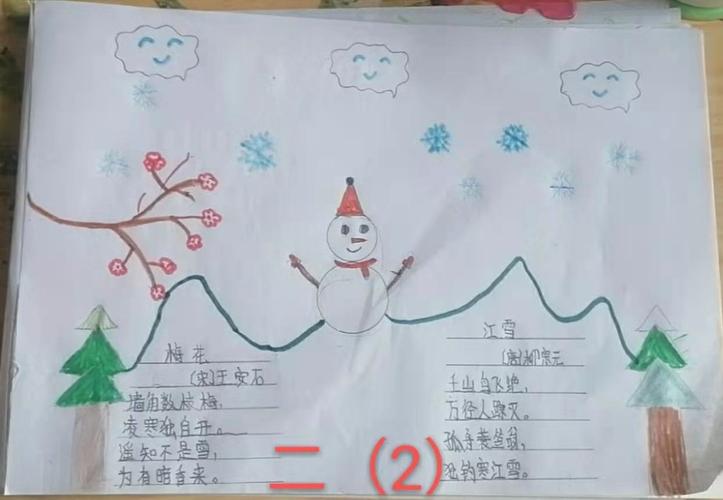 梅花
(宋)王安石
墙角数枝梅,
凌寒独自开。
遥知不是雪,
为有暗香来。
江雪
(唐)柳宗元
千山鸟飞绝,
万径人踪灭。
孤舟蓑笠翁,
独钓寒江雪。
二 (2)